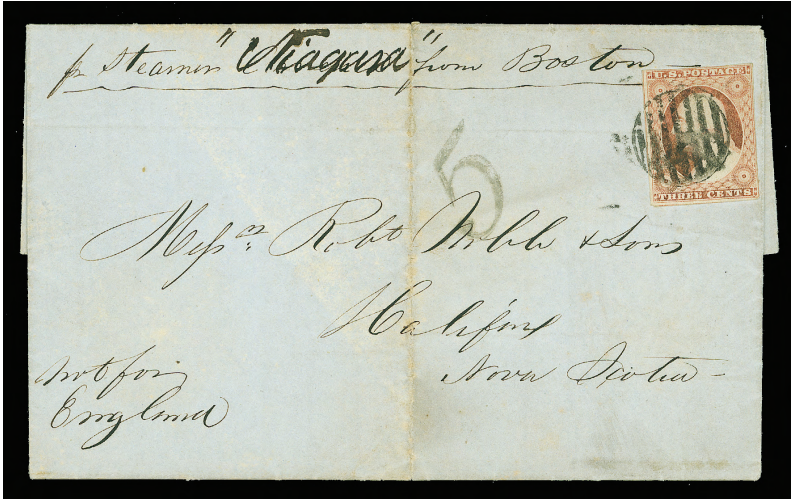 pr Steamer "Niagara" from Boston
U.S. POSTAGE
5
THREE CENTS
Messrs. Robt Noble & Sons
Halifax
Nova Scotia
not for
England